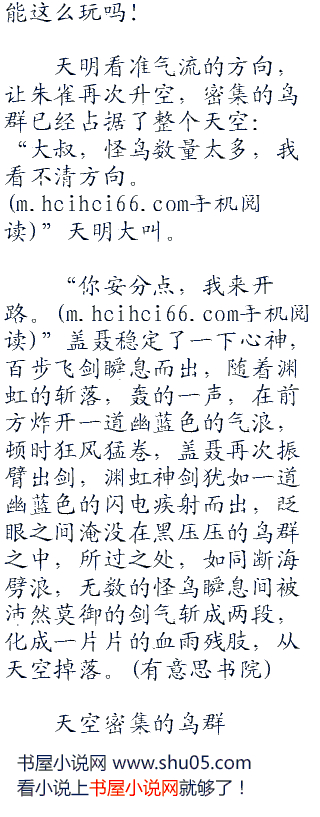 能这么玩吗！
天明看准气流的方向，
让朱雀再次升空，密集的鸟
群已经占据了整个天空：
“大叔，怪鸟数量太多，我
看不清方向。
(m.hcihci66.com手机阅
读)”天明大叫。
“你安分点，我来开
路。(m.hcihci66.com手机阅
读)”盖聂稳定了一下心神，
百步飞剑瞬息而出，随着渊
虹的斩落，轰的一声，在前
方炸开一道幽蓝色的气浪，
顿时狂风猛卷，盖聂再次振
臂出剑，渊虹神剑犹如一道
幽蓝色的闪电疾射而出，眨
眼之间淹没在黑压压的鸟群
之中，所过之处，如同断海
劈浪，无数的怪鸟瞬息间被
沛然莫御的剑气斩成两段，
化成一片片的血雨残肢，从
天空掉落。(有意思书院)
天空密集的鸟群
书屋小说网 www.shu05.com
看小说上书屋小说网就够了！